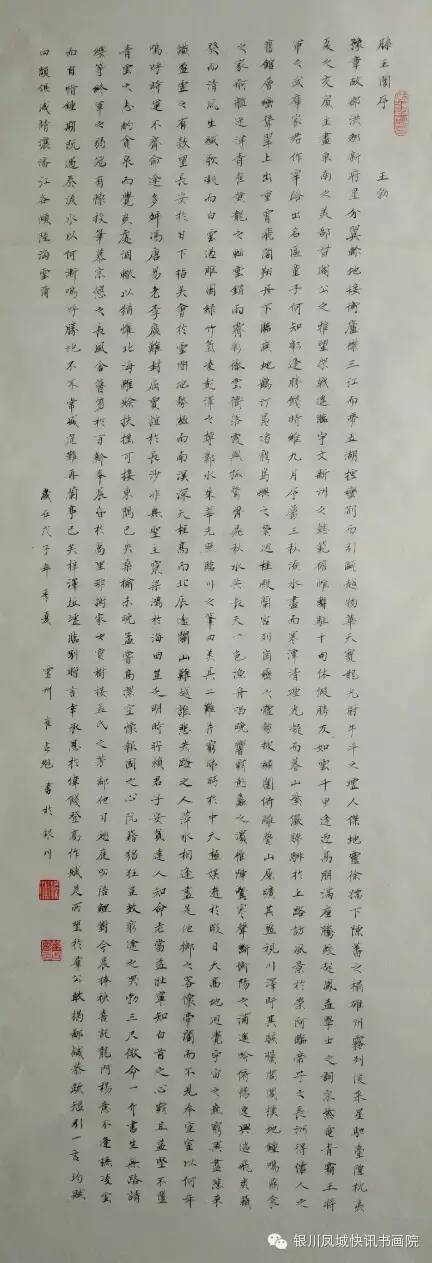 滕王閣序 王勃
豫章故郡洪都新府星分翼軫地接衡廬襟三江而帶五湖控蠻荊而引甌越物華天寶龍光射牛斗之墟人傑地靈徐孺下陳蕃之榻雄州霧列俊采星馳臺隍枕夷
夏之交賓主盡東南之美都督閻公之雅望棨戟遙臨宇文新州之懿範襜帷暫駐十旬休假勝友如雲千里逢迎高朋滿座騰蛟起鳳孟學士之詞宗紫電青霜王將
軍之武庫家君作宰路出名區童子何知躬逢勝餞時維九月序屬三秋潦水盡而寒潭清煙光凝而暮山紫儼驂騑於上路訪風景於崇阿臨帝子之長洲得僊人之
舊館層巒聳翠上出重霄飛閣翔丹下臨無地鶴汀鳧渚窮島嶼之縈迴桂殿蘭宮列岡巒之體勢披繡闥俯雕甍山原曠其盈視川澤盱其駭矚閭閻撲地鐘鳴鼎食
之家舸艦迷津青雀黃龍之舳雲銷雨霽彩徹雲衢落霞與孤鶩齊飛秋水共長天一色漁舟唱晚響窮彭蠡之濱雁陣驚寒聲斷衡陽之浦遙吟俯暢逸興遄飛爽籟
發而清風生纖歌凝而白雲遏睢園綠竹氣凌彭澤之樽鄴水朱華光照臨川之筆四美具二難并窮睇眄於中天極娛遊於暇日天高地迥覺宇宙之無窮興盡悲來
識盈虛之有數望長安於日下指吳會於雲間地勢極而南溟深天柱高而北辰遠關山難越誰悲失路之人萍水相逢盡是他鄉之客懷帝閽而不見奉宣室以何年
嗚呼時運不齊命途多舛馮唐易老李廣難封屈賈誼於長沙非無聖主竄梁鴻於海曲豈乏明時所賴君子安貧達人知命老當益壯寧知白首之心窮且益堅不墜
青雲之志酌貪泉而覺爽處涸轍以猶懽北海雖賒扶搖可接東隅已失桑榆未晚孟嘗高潔空懷報國之心阮籍猖狂豈效窮途之哭勃三尺微命一介書生無路請
纓等終軍之弱冠有懷投筆慕宗愨之長風舍簪笏於百齡奉晨昏於萬里非謝家之寶樹接孟氏之芳鄰他日趨庭叨陪鯉對今晨捧袂喜託龍門楊意不逢撫凌雲
而自惜鍾期既遇奏流水以何慚嗚呼勝地不常盛筵難再蘭亭已矣梓澤丘墟臨別贈言幸承恩於偉餞登高作賦是所望於群公敢竭鄙誠恭疏短引一言均賦
四韻俱成請灑潘江各傾陸海雲爾
歲在戊子年季夏 靈州 書於銀川
银川凤城快讯书画院